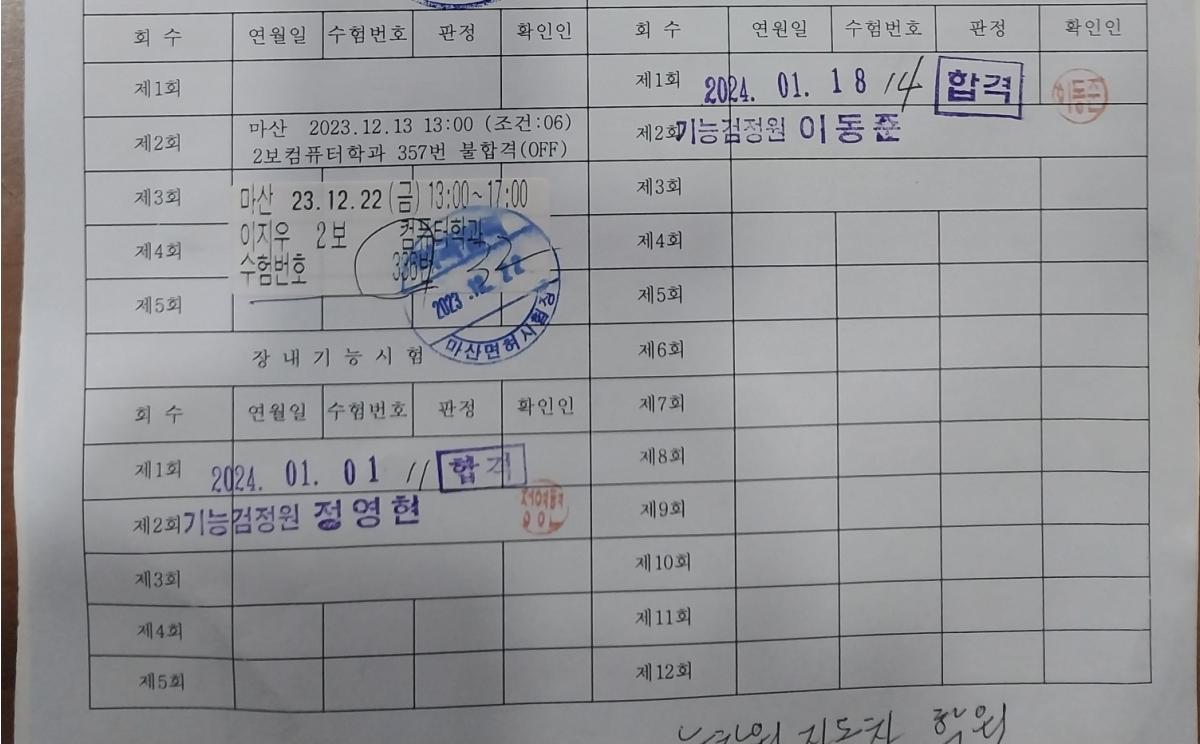 회 수 연월일 수험번호 판정 확인인
제1회
제2회 마산 2023.12.13 13:00 (조건:06)
2보컴퓨터학과 357번 불합격(OFF)
제3회 마산 23.12.22(금)13:00~17:00
이지우 2보 컴퓨터학과
제4회
수험번호 336번 33
2023.12.22
제5회
마산면허시험장
장내기능시험
회 수 연월일 수험번호 판정 확인인
제1회 2024. 01. 01 11 합격
제2회 기능검정원 정영현
제3회
제4회
제5회
회 수 연월일 수험번호 판정 확인인
제1회 2024. 01. 18 14 합격 이동준
제2회 기능검정원 이동준
제3회
제4회
제5회
제6회
제7회
제8회
제9회
제10회
제11회
제12회
학원